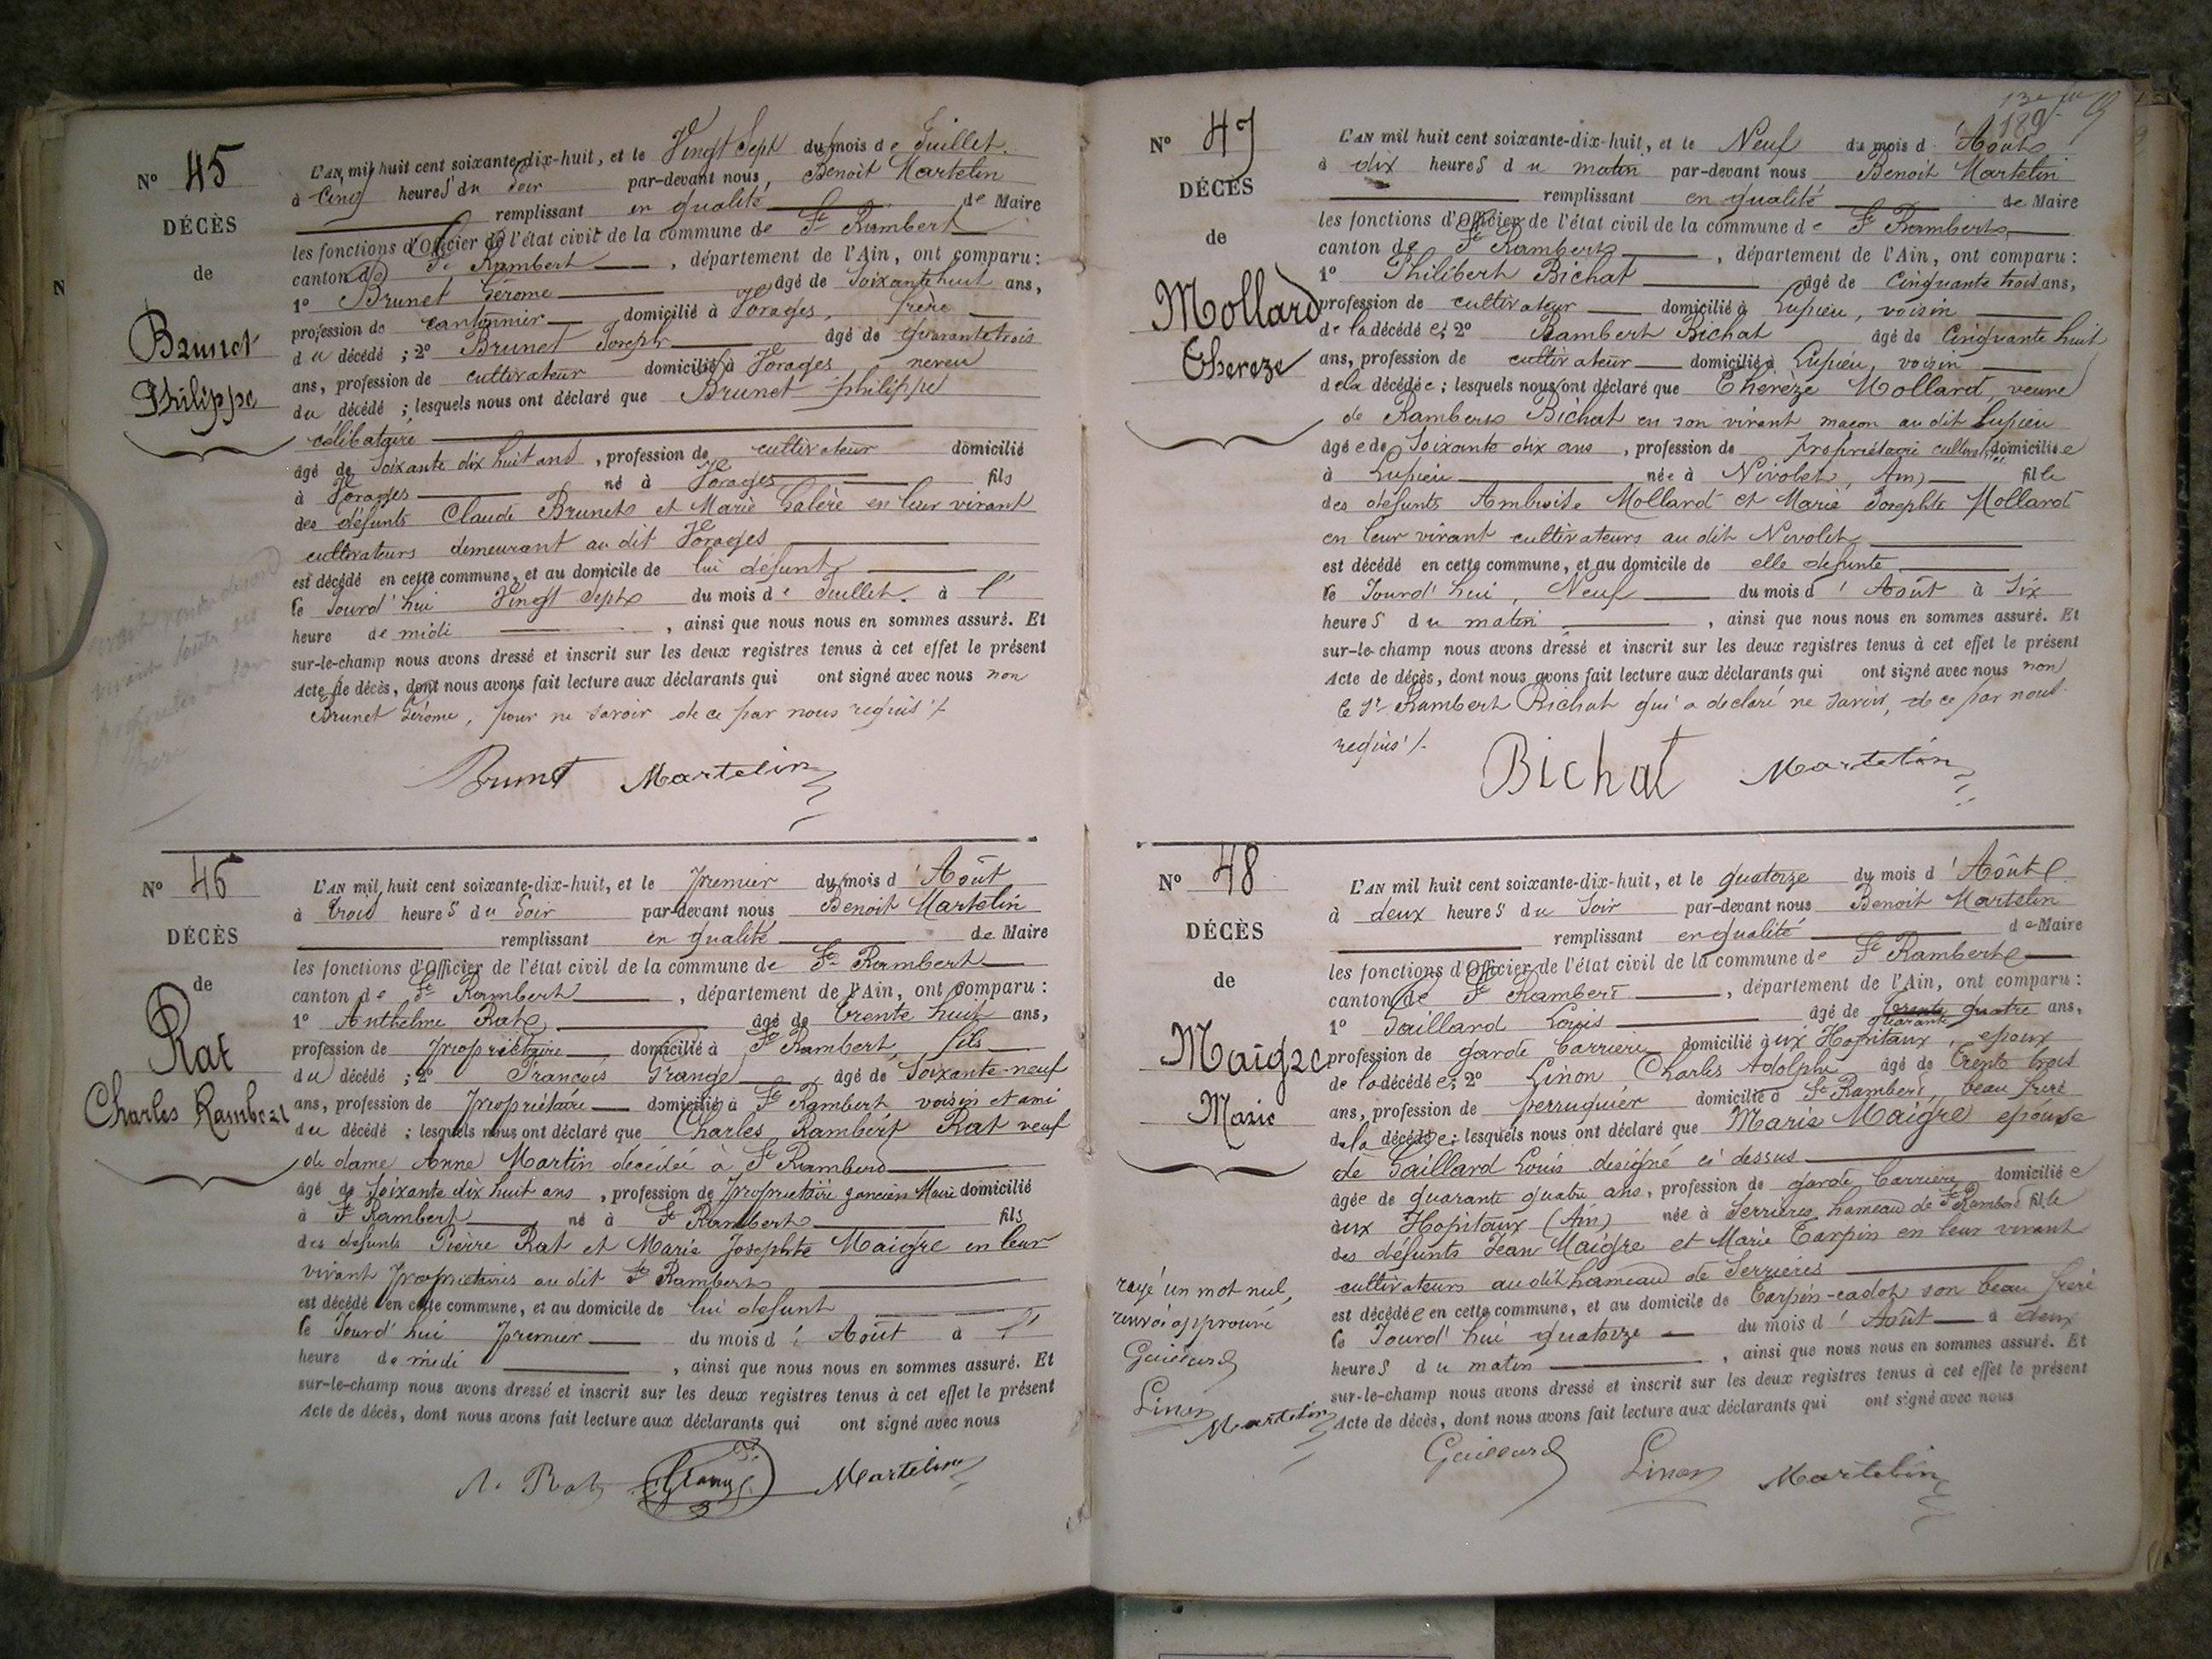 N° 45
DÉCÈS
de
Brunet
Philippe
L'AN mil huit cent soixante-dix-huit, et le Vingt Sept du mois de Juillet.
à Cinq heures du soir par-devant nous, Benoit Martelin
remplissant en qualité de Maire
les fonctions d'Officier de l'état civil de la commune de St Rambert
canton de St Rambert, département de l'Ain, ont comparu :
1° Brunet Gérome âgé de soixante huit ans,
profession de cantonnier domicilié à Vorages, frère
du décédé ; 2° Brunet Joseph âgé de quarante trois
ans, profession de cultivateur domicilié à Vorages neveu
du décédé ; lesquels nous ont déclaré que Brunet philippe
célibataire
âgé de Soixante dix huit ans, profession de cultivateur domicilié
à Vorages né à Vorages fils
des défunts Claude Brunet et Marie Galère en leur vivant
cultivateurs demeurant au dit Vorages
est décédé en cette commune, et au domicile de lui défunt
le Jourd'hui Vingt Sept du mois de Juillet. à l'
heure de midi, ainsi que nous nous en sommes assuré. Et
sur-le-champ nous avons dressé et inscrit sur les deux registres tenus à cet effet le présent
Acte de décès, dont nous avons fait lecture aux déclarants qui ont signé avec nous non
Brunet Gérome, pour ne savoir de ce par nous requis /.
Brunet Martelin
N° 46
DÉCÈS
de
Rat
Charles Rambert
L'AN mil huit cent soixante-dix-huit, et le premier du mois d'Août
à trois heures du Soir par-devant nous Benoit Martelin
remplissant en qualité de Maire
les fonctions d'Officier de l'état civil de la commune de St Rambert
canton de St Rambert, département de l'Ain, ont comparu :
1° Anthelme Rat âgé de trente huit ans,
profession de propriétaire domicilié à St Rambert, fils
du décédé ; 2° François Grange âgé de Soixante-neuf
ans, profession de propriétaire domicilié à St Rambert voisin et ami
du décédé ; lesquels nous ont déclaré que Charles Rambert Rat veuf
de dame Anne Martin décédée à St Rambert
âgé de Soixante dix huit ans, profession de propriétaire ancien Maire domicilié
à St Rambert né à St Rambert fils
des defunts Pierre Rat et Marie Josephte Maigre en leur
vivant propriétaires au dit St Rambert
est décédé en cette commune, et au domicile de lui defunt
le Jourd'hui premier du mois d'Août à l'
heure de midi, ainsi que nous nous en sommes assuré. Et
sur-le-champ nous avons dressé et inscrit sur les deux registres tenus à cet effet le présent
Acte de décès, dont nous avons fait lecture aux déclarants qui ont signé avec nous
A. Rat Grange Martelin
189
N° 47
DÉCÈS
de
Mollard
Thereze
L'AN mil huit cent soixante-dix-huit, et le Neuf du mois d'Août
à dix heures du matin par-devant nous Benoit Martelin
remplissant en qualité de Maire
les fonctions d'Officier de l'état civil de la commune de St Rambert
canton de St Rambert, département de l'Ain, ont comparu :
1° Philibert Bichat âgé de Cinquante trois ans,
profession de cultivateur domicilié à Lupieu, voisin
de la décédée ; 2° Rambert Bichat âgé de Cinquante huit
ans, profession de cultivateur domicilié à Lupieu, voisin
de la décédée ; lesquels nous ont déclaré que Thérèze Mollard, veuve
de Rambert Bichat en son vivant maçon au dit Lupieu
âgée de Soixante dix ans, profession de Propriétaire domiciliée
à Lupieu née à Nivolet, Ain) fille
des defunts Ambroise Mollard et Marie Josephte Mollard
en leur vivant cultivateurs au dit Nivolet
est décédé en cette commune, et au domicile de elle defunte
le Jourd'hui, Neuf du mois d'Août à Six
heures du matin, ainsi que nous nous en sommes assuré. Et
sur-le-champ nous avons dressé et inscrit sur les deux registres tenus à cet effet le présent
Acte de décès, dont nous avons fait lecture aux déclarants qui ont signé avec nous non
le Sr Rambert Bichat qui a déclaré ne savoir, de ce par nous
requis /.
Bichat Martelin
N° 48
DÉCÈS
de
Maigre
Marie
L'AN mil huit cent soixante-dix-huit, et le quatorze du mois d'Août
à deux heures du Soir par-devant nous Benoit Martelin
remplissant en qualité de Maire
les fonctions d'Officier de l'état civil de la commune de St Rambert
canton de St Rambert, département de l'Ain, ont comparu :
1° Gaillard Louis âgé de trente quarante quatre ans,
profession de garde barrière domicilié aux Hopitaux, epoux
de la décédée ; 2° Linon Charles Adolphe âgé de trente trois
ans, profession de perruquier domicilié à St Rambert, beau frère
de la décédée ; lesquels nous ont déclaré que Marie Maigre épouse
de Gaillard Louis designé ci dessus
âgée de quarante quatre ans, profession de garde barrière domiciliée
aux Hopitaux (Ain) née à Serrières hameau de St Rambert fille
des défunts Jean Maigre et Marie Tarpin en leur vivant
cultivateurs au dit hameau de Serrières
est décédée en cette commune, et au domicile de Tarpin-cadot son beau frère
le Jourd'hui quatorze du mois d'Août à deux
heures du matin, ainsi que nous nous en sommes assuré. Et
sur-le-champ nous avons dressé et inscrit sur les deux registres tenus à cet effet le présent
Acte de décès, dont nous avons fait lecture aux déclarants qui ont signé avec nous
rayé un mot nul,
renvoi approuvé
Gaillard
Linon
Martelin
Gaillard Linon Martelin